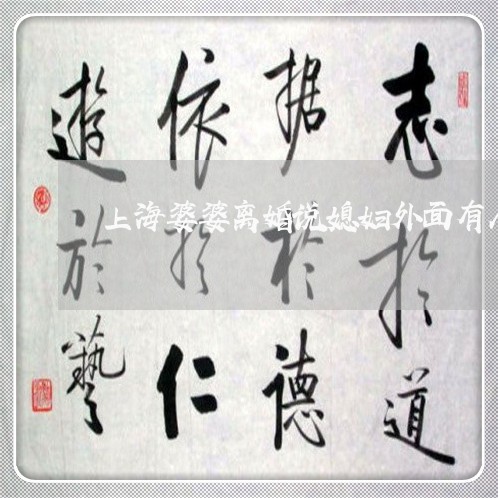 志於道
据於德
依於仁
遊於藝
上海婆婆离婚说媳妇外面有